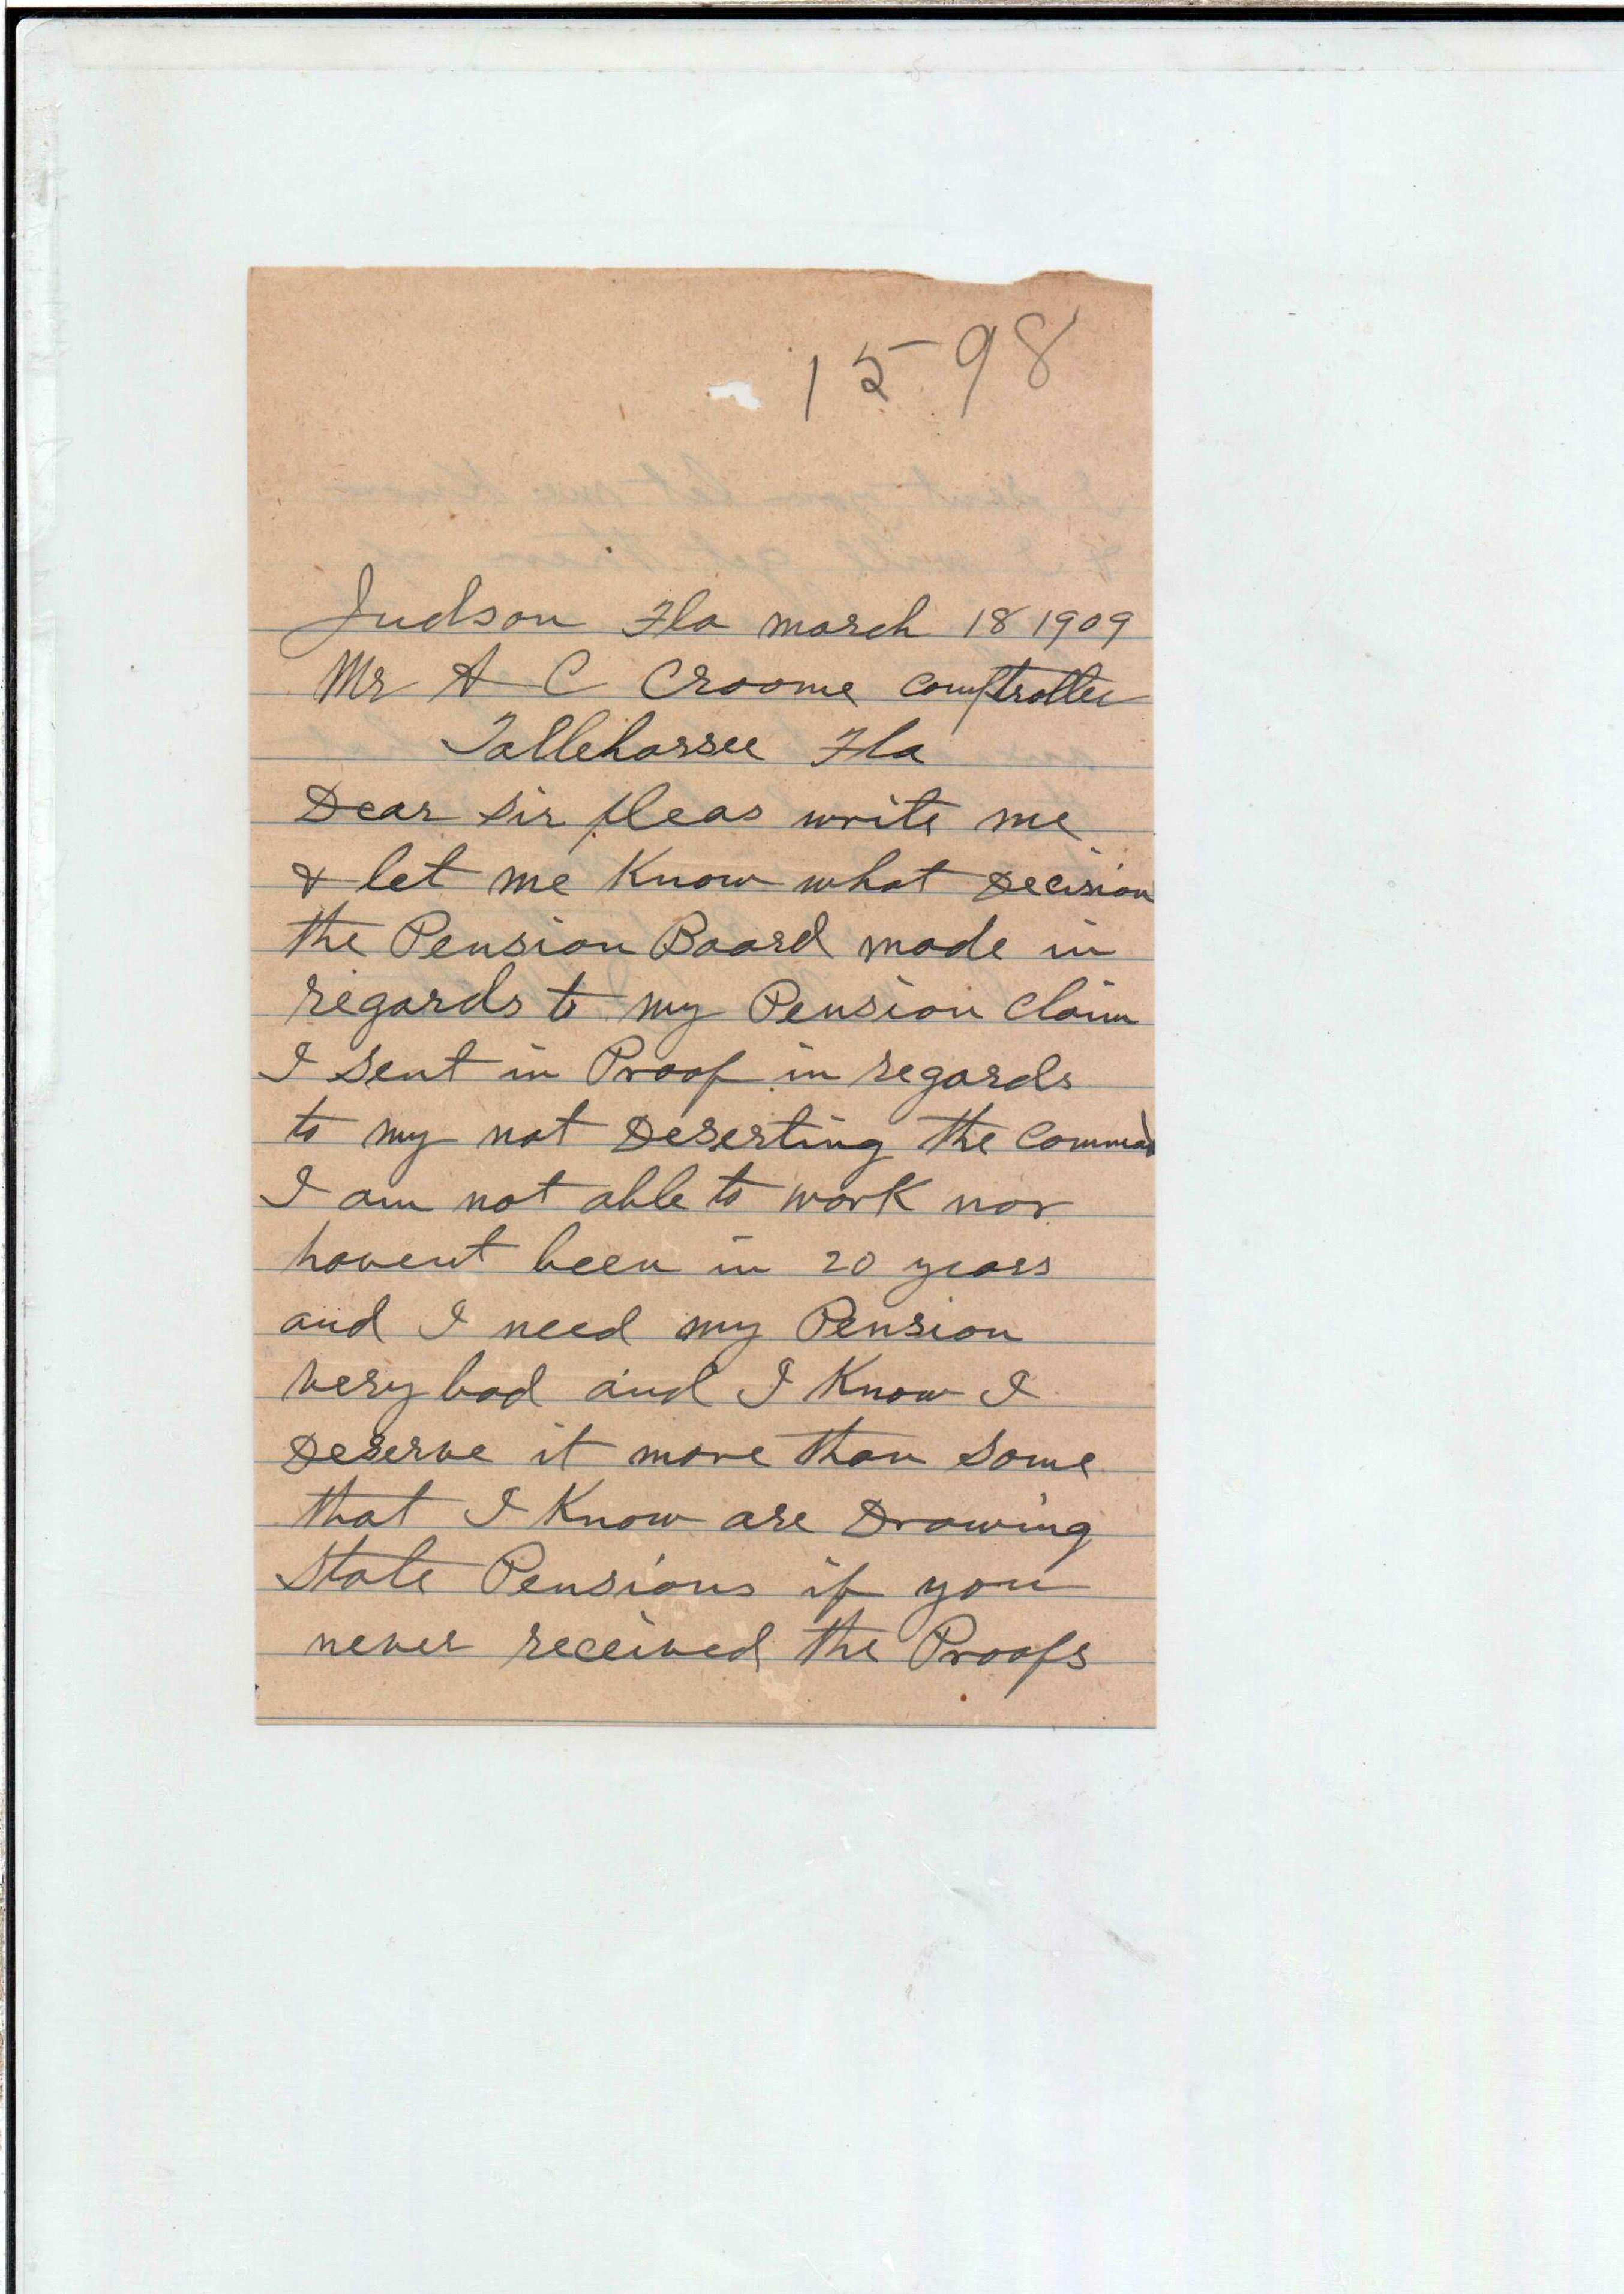 1598
Judson Fla march 18 1909
Mr A C Croome comptroller
Tallehassee Fla
Dear Sir pleas write me
& let me Know what Decision
the Pension Board made in
regards to my Pension Claim
I sent in Proof in regards
to my not Deserting the Command
I am not able to work nor
havent been in 20 years
and I need my Pension
very bad and I Know I
Deserve it more than some
that I Know are Drawing
State Pensions if you
never received the Proofs